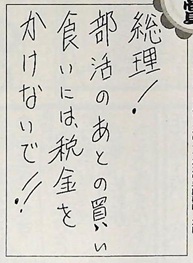 総理！
部活のあとの買い
食いには税金を
かけないで！！